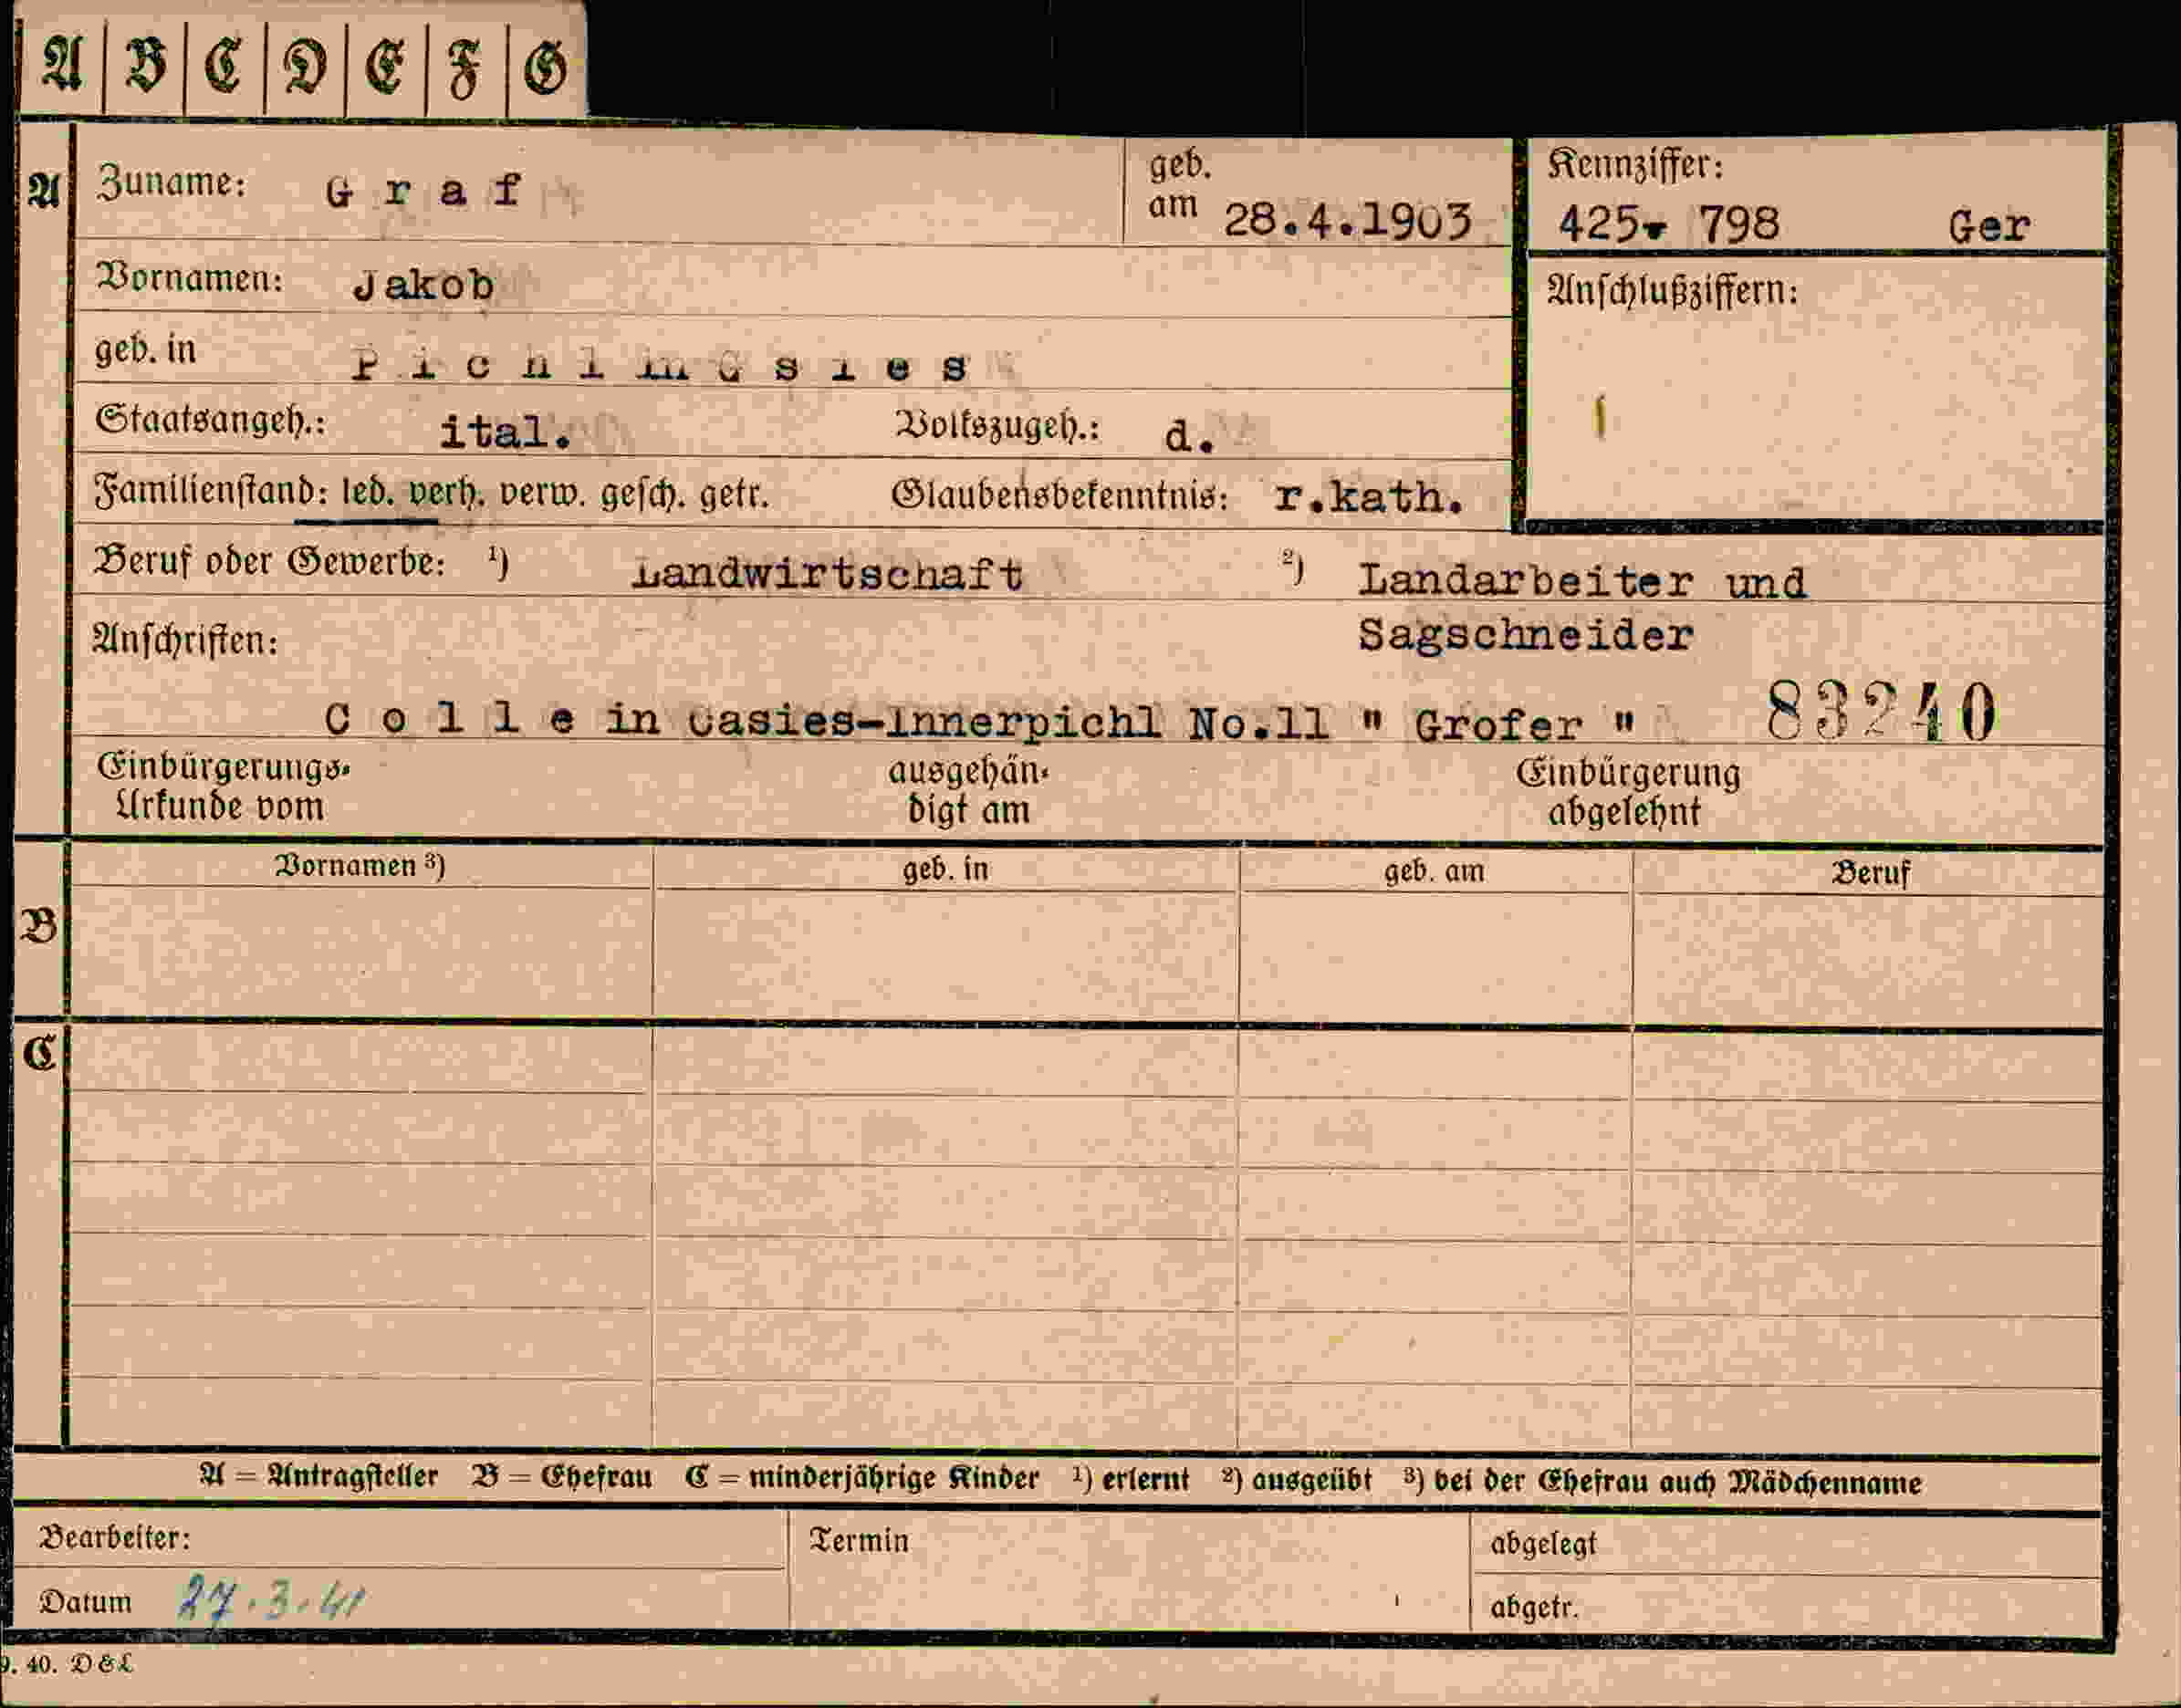 A B C D E F G
A Zuname: G r a f geb. am 28.4.1903 Kennziffer: 425- 798 Ger
Vornamen: Jakob Anschlußziffern:
geb. in P i c h l in G s i e s
Staatsangeh.: ital. Volkszugeh.: d.
Familienstand: led. verh. verw. gesch. getr. Glaubensbekenntnis: r.kath.
Beruf oder Gewerbe: ¹) Landwirtschaft ²) Landarbeiter und
Anschriften: Sagschneider
C o l l e in Casies-Innerpichl No.11 " Grofer " 83240
Einbürgerungs- ausgehän- Einbürgerung
Urkunde vom digt am abgelehnt
Vornamen ³) geb. in geb. am Beruf
B
C
A = Antragsteller B = Ehefrau C = minderjährige Kinder ¹) erlernt ²) ausgeübt ³) bei der Ehefrau auch Mädchenname
Bearbeiter: Termin abgelegt
Datum 27.3.41 abgetr.
9. 40. D & L